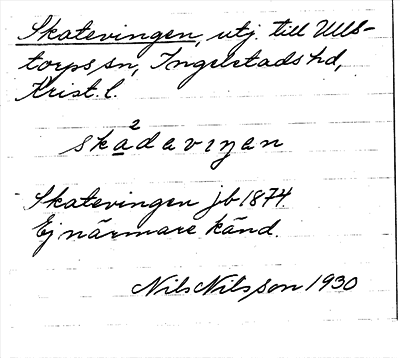 Skatevingen, utj. till Ulls-
torps sn, Ingelstads hd,
Krist. l.
ska²davıŋən
Skatevingen jb 1874.
Ej närmare känd.
Nils Nilsson 1930